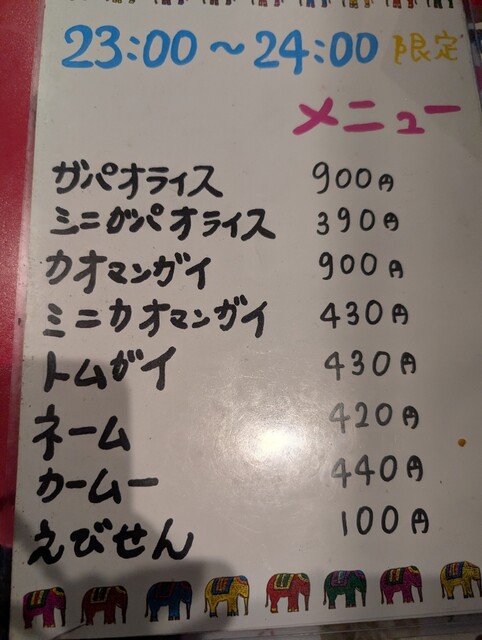 23:00～24:00 限定
メニュー
ガパオライス 900円
ミニガパオライス 390円
カオマンガイ 900円
ミニカオマンガイ 430円
トムガイ 430円
ネーム 420円
カームー 440円
えびせん 100円